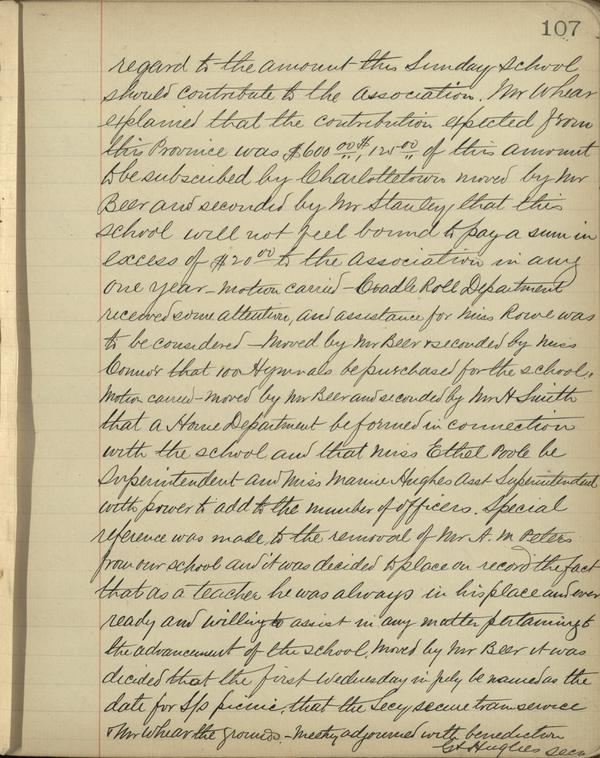 107
regard to the amount this Sunday school
should contribute to the association. Mr Whear
explained that the contribution expected from
this Province was $600.00 $125.00 of this amount
to be subscribed by Charlottetown moved by Mr
Beer and seconded by Mr Stanley, that this
school will not feel bound to pay a sum in
excess of $20.00 to the association in any
one year – motion carried – Cradle Roll Department
received some attention, and assistance for Miss Rowe was
to be considered – Moved by Mr Beer & seconded by Miss
Connor that 100 Hymnals be purchased for the school.
Motion carried – moved by Mr Beer and seconded by Mr H Smith
that a Home Department be formed in connection
with the school and that Miss Ethel Poole be
Superintendent and Miss Mamie Hughes Asst Superintendent
with power to add to the number of officers. Special
reference was made, to the removal of Mr A. M Peters
from our school and it was decided to place on record the fact
that as a teacher he was always in his place and ever
ready and willing to assist in any matter pertaining to
the advancement of the school. Moved by Mr Beer it was
decided that the first Wednesday in July be named as the
date for S/s picnic, that the Secy secure train service
& Mr Whear the grounds. – Meeting adjourned with benediction
Hughes secy